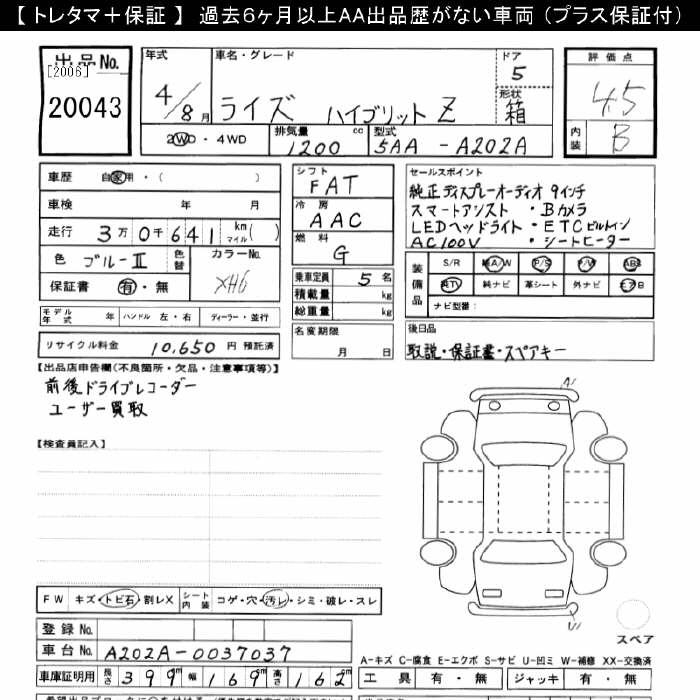 【 トレタマ＋保証 】 過去6ヶ月以上AA出品歴がない車両（プラス保証付）
出品No.
[2006]
20043
年式
4/8月
車名・グレード
ライズ ハイブリット Z
ドア
5
形状
箱
評価点
4.5
内装
B
2WD・4WD
排気量
1200 cc
型式
5AA - A202A
車歴 自家用・( )
車検 年 月
走行 3万0千641 km マイル ( )
色 ブルーII 色替
カラーNo.
XH6
保証書 有・無
モデル年式 年 ハンドル 左・右 ディーラー・並行
リサイクル料金 10,650 円 預託済
シフト
FAT
冷房
AAC
燃料
G
乗車定員 5 名
積載量 kg
総重量 kg
名変期限
月 日
セールスポイント
純正ディスプレーオーディオ 9インチ
スマートアシスト・Bカメラ
LEDヘッドライト・ETCビルトイン
AC100V・シートヒーター
装備品
S/R 純A/W P/S P/W ABS
純TV 純ナビ 革シート 外ナビ エアB
ナビ型番:
後日品
取説・保証書・スペアキー
【出品店申告欄(不良箇所・欠品・注意事項等)】
前後ドライブレコーダー
ユーザー買取
【検査員記入】
FW キズ・トビ石・割レX シート内装 コゲ・穴・汚レ・シミ・破レ・スレ
登録No.
車台No. A202A-0037037
車庫証明用 長さ 399 幅 169 高さ 162
スペア
A-キズ C-腐食 E-エクボ S-サビ U-凹ミ W-補修 XX-交換済
工具 有・無 ジャッキ 有・無